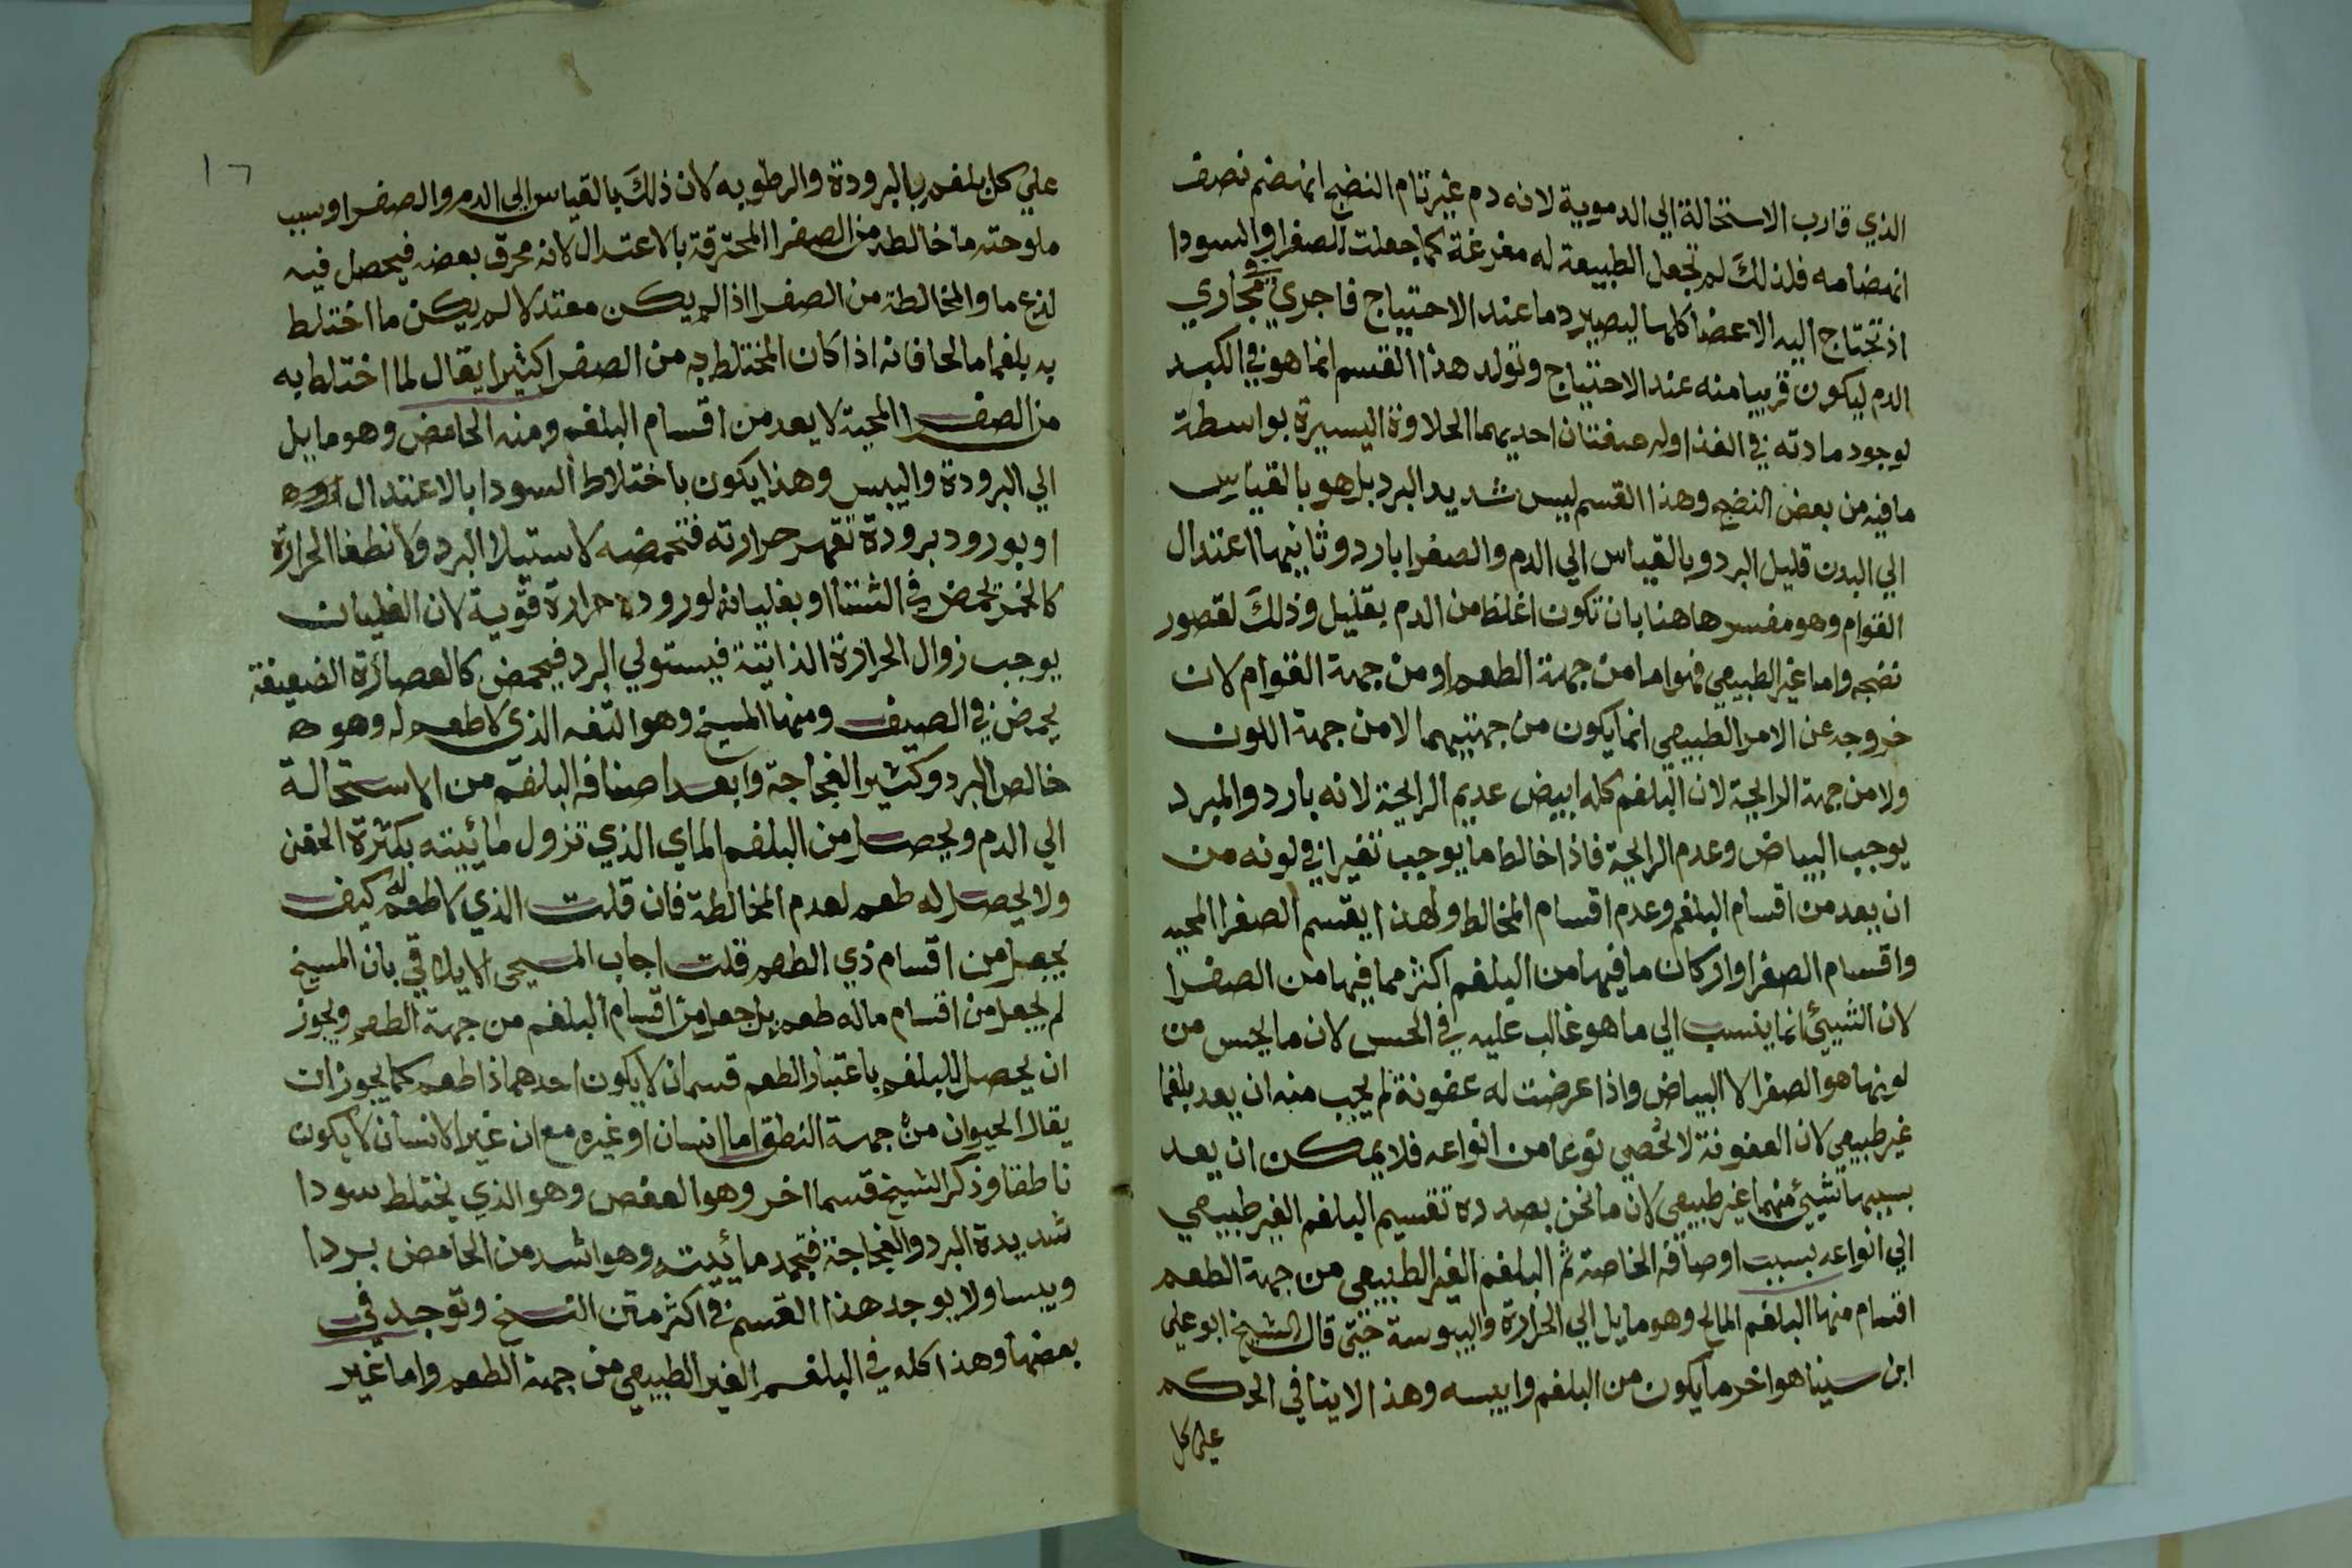 الذي قارب الاستحالة الي الدموية لانه دم غير تام النضج انهضم نصف
انهضامه فلذلك لم تجعل الطبيعة له مفرغة كما جعلت للصفرا والسودا
اذ تحتاج اليه الاعضا كلها ليصير دما عند الاحتياج فاجري في مجاري
الدم ليكون قريبا منه عند الاحتياج وتولد هذا القسم انما هو في الكبد
لوجود مادته في الغذا وله صفتان احديهما الحلاوة اليسيرة بواسطة
ما فيه من بعض النضج وهذا القسم ليس شديد البرد بل هو بالقياس
الي البدن قليل البرد وبالقياس الي الدم والصفرا بارد وثانيها اعتدال
القوام وهو مفسر هاهنا بان تكون اغلظ من الدم بقليل وذلك لقصور
نضجه واما غير الطبيعي فهو اما من جهة الطعم او من جهة القوام لان
خروجه عن الامر الطبيعي انما يكون من جهتيهما لا من جهة اللون
ولا من جهة الرايحة لان البلغم كله ابيض عديم الرايحة لانه بارد والمبرد
يوجب البياض وعدم الرايحة فاذا خالط ما يوجب تغيرا في لونه من
ان يعد من اقسام البلغم وعدم اقسام المخالط ولهذا يقسم الصفرا المحيه
واقسام الصفرا وان كان ما فيها من البلغم اكثر مما فيها من الصفرا
لان الشيئ انما ينسب الي ما هو غالب عليه في الحس لان ما يحس من
لونها هو الصفرا لا البياض واذا عرضت له عفونة لم يجب منه ان يعد بلغما
غير طبيعي لان العفونة لا تخصي نوعا من انواعه فلا يمكن ان يعد
بسببها شيئ منهما غير طبيعي لان ما نحن بصدده تقسيم البلغم الغير طبيعي
الي انواعه بسبب اوصافه الخاصة ثم البلغم الغير الطبيعي من جهة الطعم
اقسام منها البلغم المالح وهو مايل الي الحرارة واليبوسة حتى قال الشيخ ابو علي
ابن سينا هو احر ما يكون من البلغم وايبسه وهذا لا ينافي الحكم
على كل
١٦
علي كل بلغم بالبرودة والرطوبه لان ذلك بالقياس الي الدم والصفرا وسبب
ملوحته ما خالطه من الصفرا المحترقة بالاعتدال لانه محرق بعضه فيحصل فيه
لذع ما والمخالطة من الصفرا اذا لم يكن معتدلا لم يكن ما اختلط
به بلغما مالحا فانه اذا كان المختلط به من الصفرا كثيرا يقال لما اختلط به
من الصفرا المحية لا يعد من اقسام البلغم ومنه الحامض وهو مايل
الي البرودة واليبس وهذا يكون باختلاط السودا بالاعتدال
او بورود برودة تقهر حرارته فتحمضه لاستيلا البرد ولانطفا الحرارة
كالخمر تحمض في الشتا او بغليانه لوروده حرارة قوية لان الغليان
يوجب زوال الحرارة الذاتية فيستولي البرد فيحمض كالعصارة الضعيفة
يحمض في الصيف ومنها المسيخ وهو التفه الذي لا طعم له وهو
خالص البرد وكثير الفجاجة وابعد اصنافه البلغم من الاستحالة
الي الدم ويحصل من البلغم الماي الذي تزول مائيته بكثرة الحقن
ولا يحصل له طعم لعدم المخالطة فان قلت الذي لا طعم له كيف
يحصل من اقسام ذي الطعم قلت اجاب المسيحي الايلاقي بان المسيخ
لم يجعل من اقسام ماله طعم بل جعل من اقسام البلغم من جهة الطعم ويجوز
ان يحصل للبلغم باعتبار الطعم قسمان لا يكون احدهما ذا طعم كما يجوز ان
يقال الحيوان من جهة النطق اما انسان او غيره مع ان غير الانسان لا يكون
ناطقا وذكر الشيخ قسما اخر وهو العفص وهو الذي يختلط سودا
شديدة البرد والفجاجة فتجمد مائيته وهو اشد من الحامض بردا
ويبسا ولا يوجد هذا القسم في اكثر متن النسخ وتوجد في
بعضها وهذا كله في البلغم الغير الطبيعي من جهة الطعم واما غير